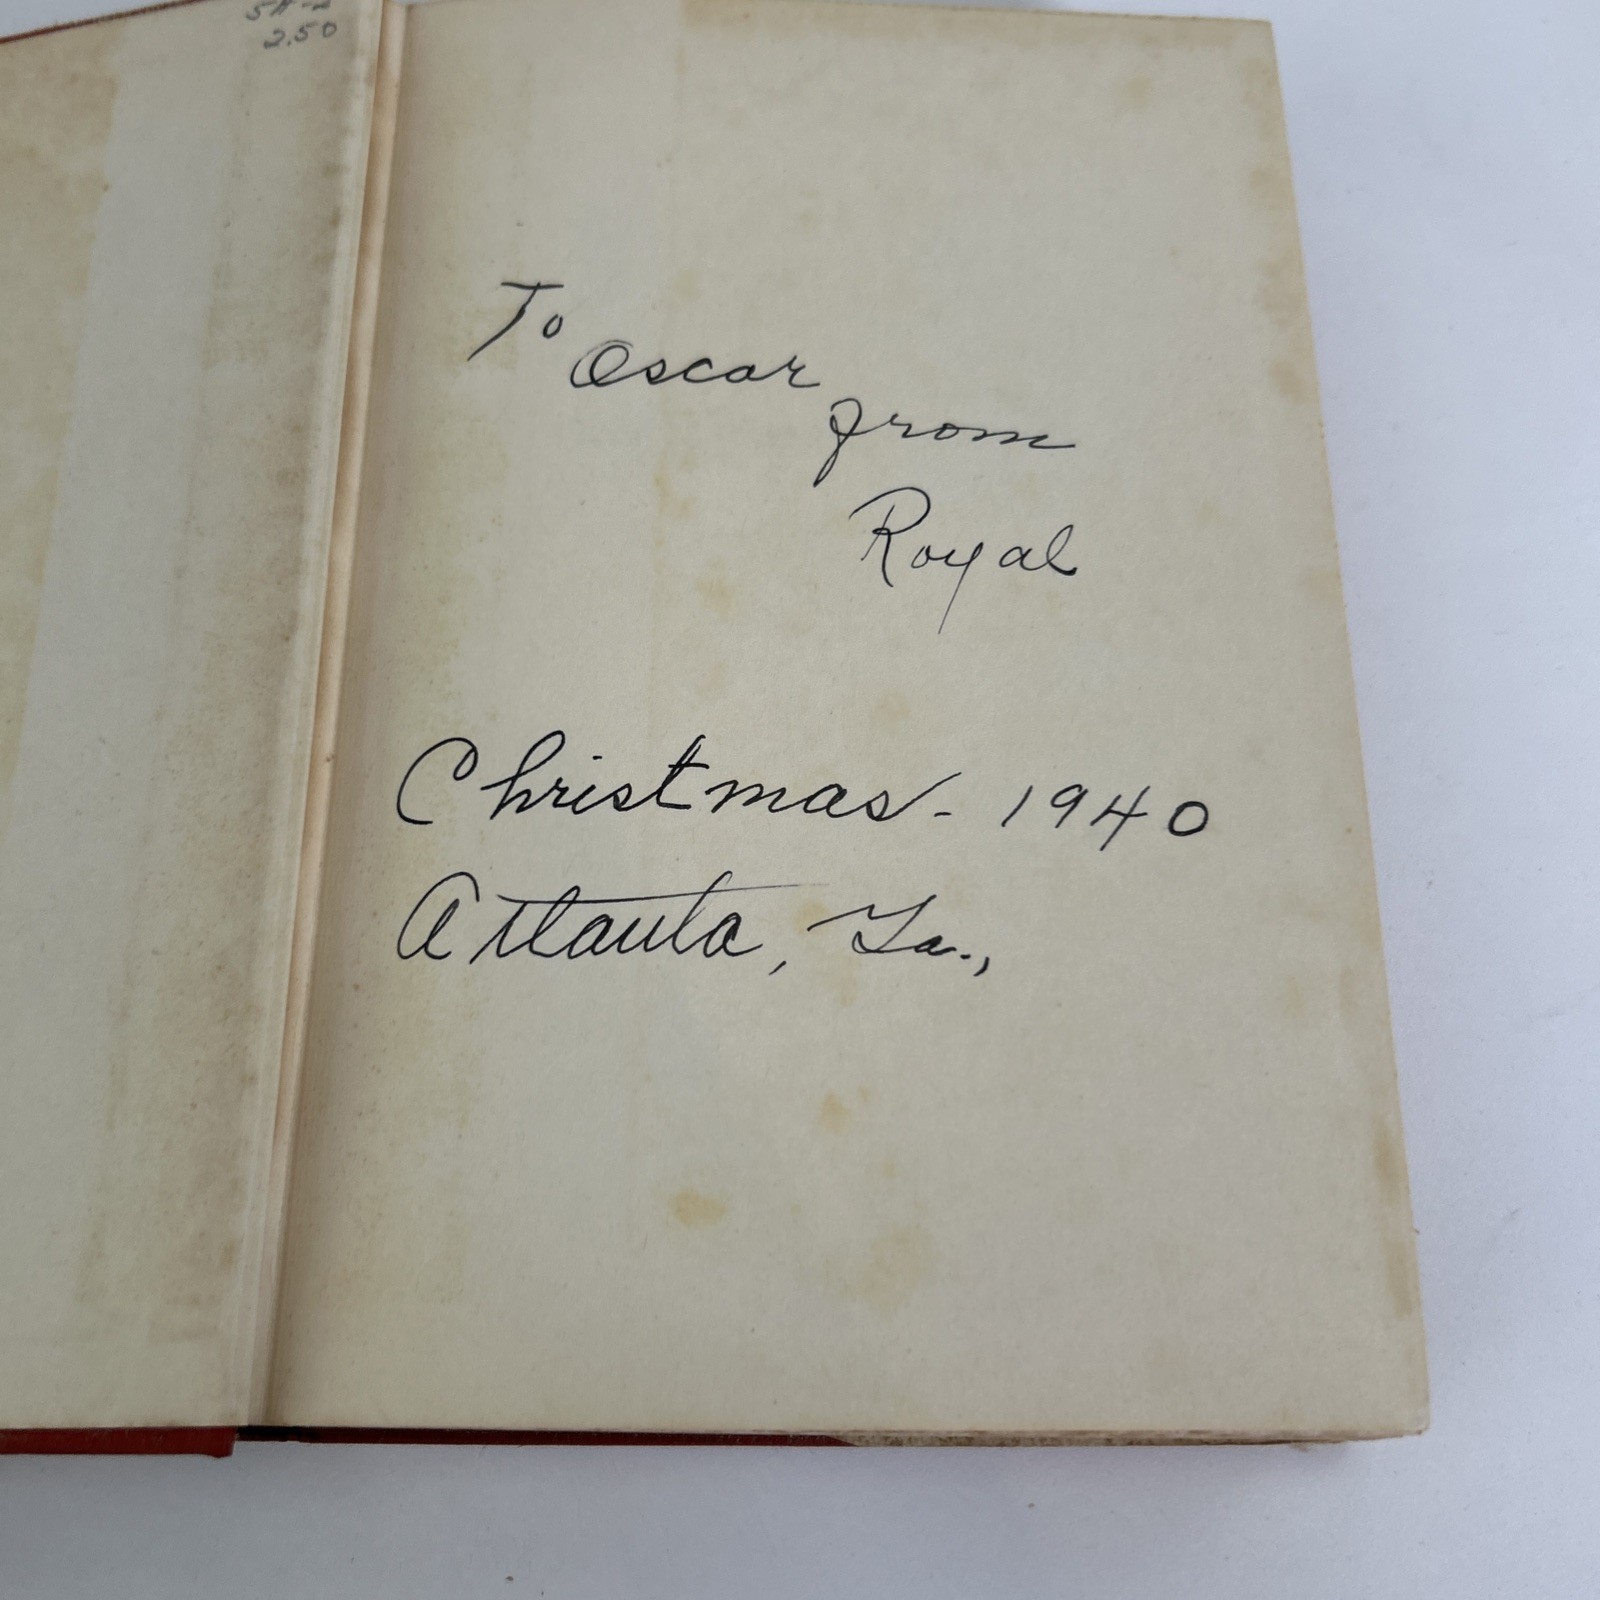 2.50
To Oscar
from
Royal
Christmas - 1940
Atlanta, Ga.,